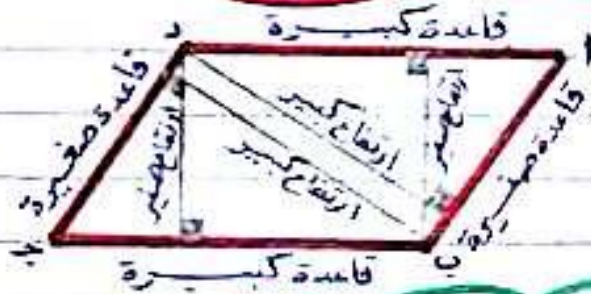 قاعدة كبيرة
د
أ
قاعدة صغيرة
ارتفاع صغير
ارتفاع كبير
ارتفاع كبير
ارتفاع صغير
قاعدة صغيرة
جـ
ب
قاعدة كبيرة